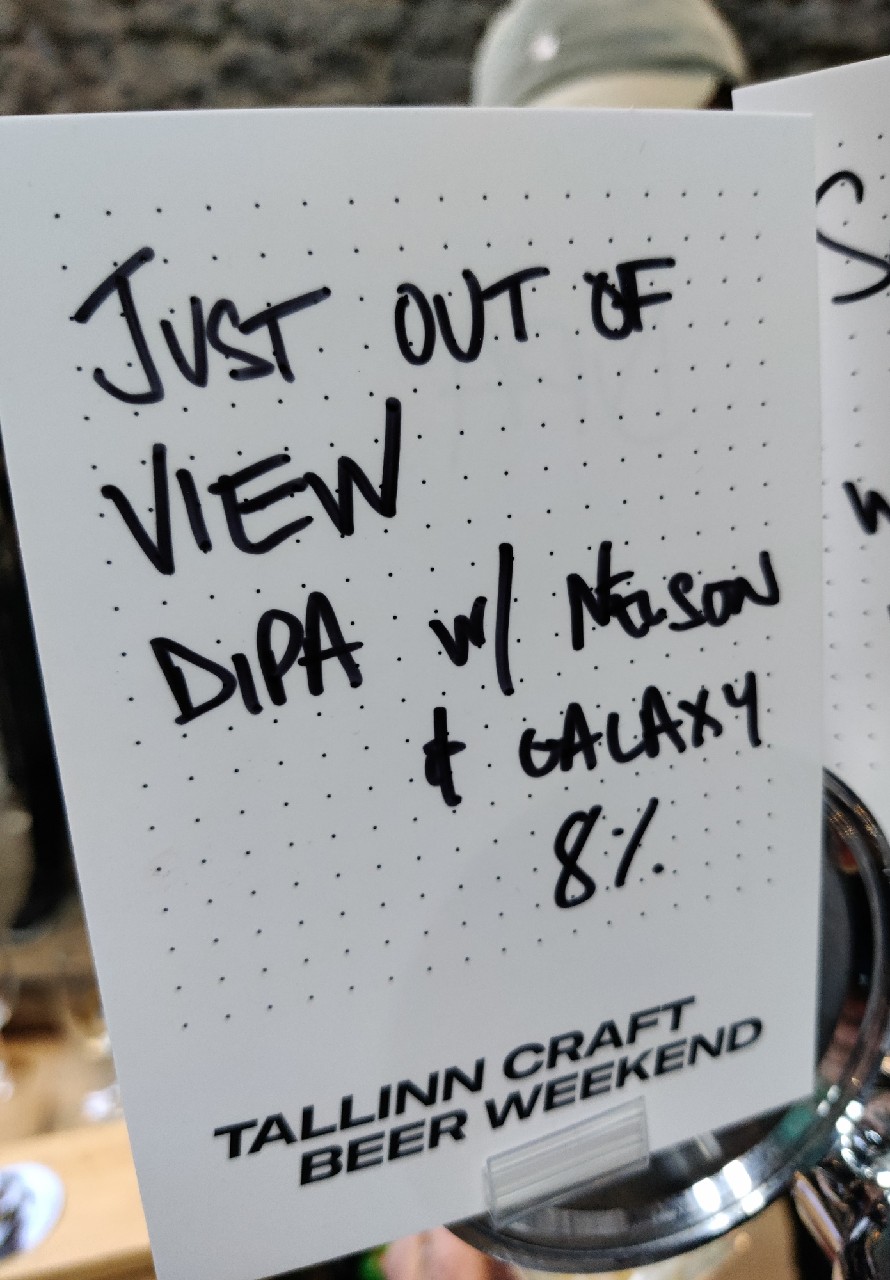 JUST OUT OF
VIEW
DIPA w/ NELSON
& GALAXY
8%
TALLINN CRAFT
BEER WEEKEND